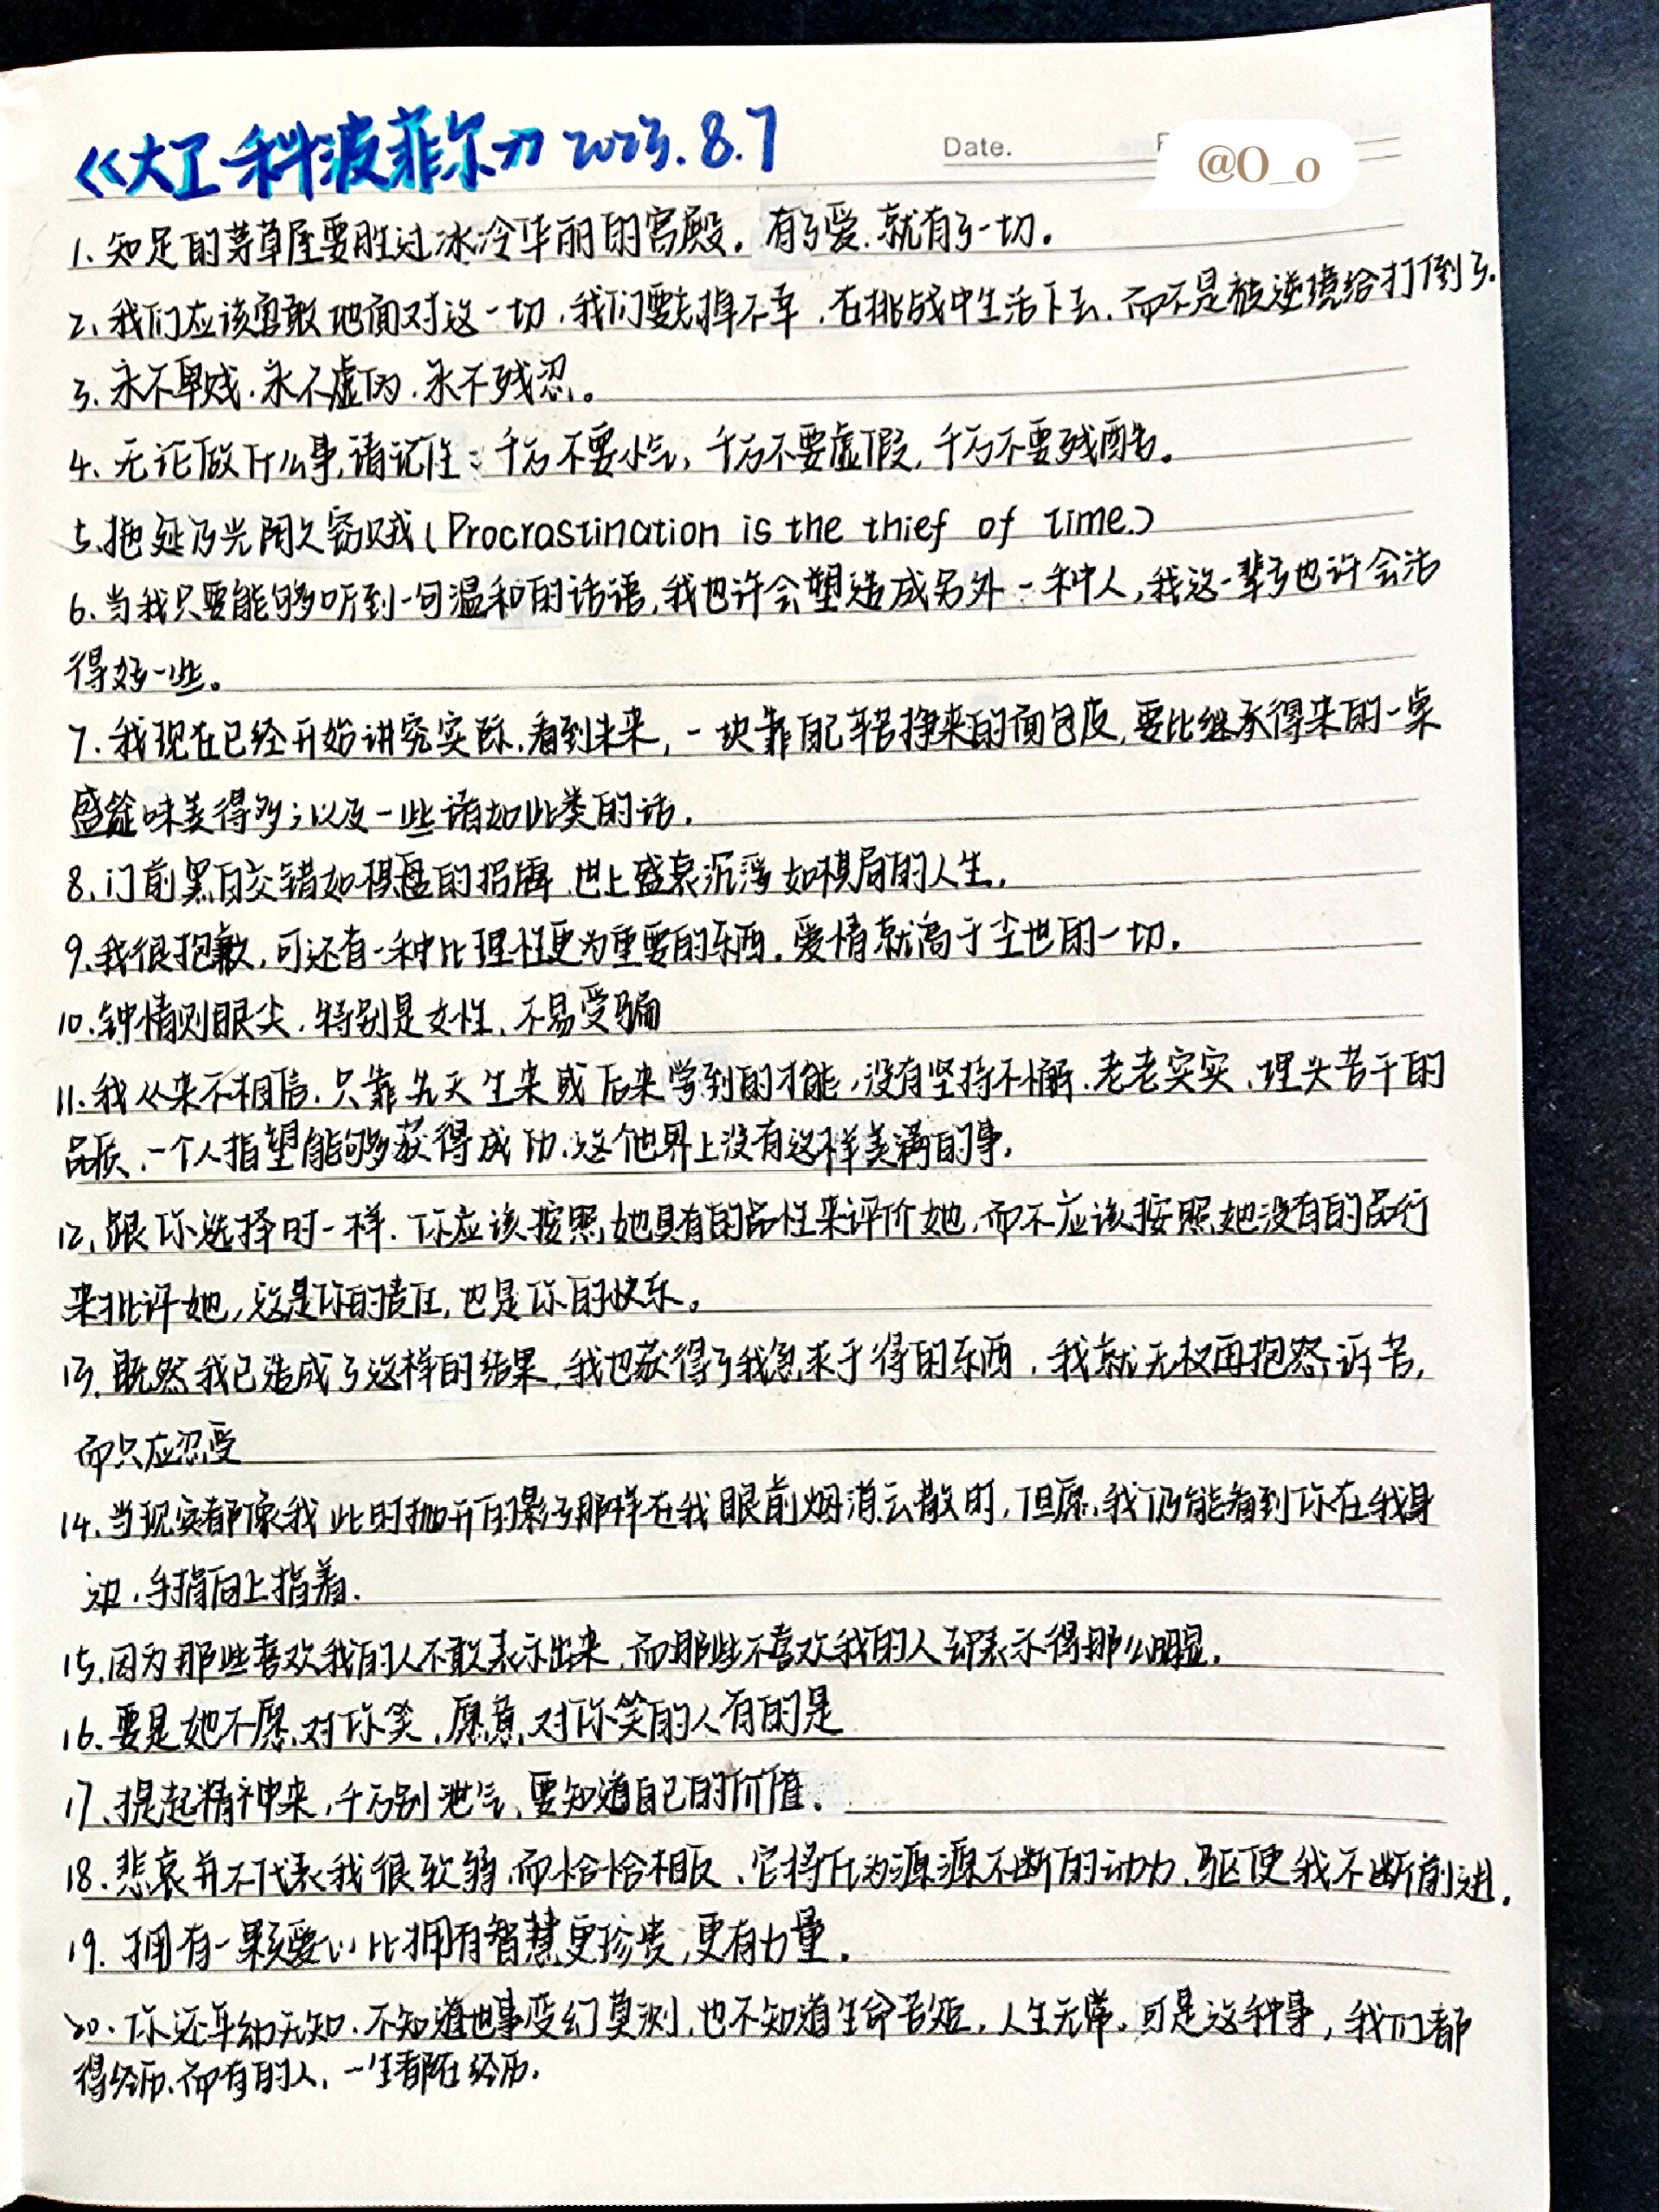 《大卫·科波菲尔》 2023.8.7
Date.
@O_o
1、知足的茅草屋要胜过冰冷华丽的宫殿。有了爱,就有了一切。
2、我们应该勇敢地面对这一切,我们要忘掉不幸,在挑战中生活下去,而不是被逆境给打倒了.
3、永不卑贱,永不虚伪,永不残忍。
4、无论做什么事,请记住:千万不要小气,千万不要虚假,千万不要残酷。
5、拖延乃光阴之窃贼(Procrastination is the thief of time.)
6、当我只要能够听到一句温和的话语,我也许会塑造成另外一种人,我这一辈子也许会活
得好一些。
7、我现在已经开始讲究实际,看到未来,一块靠自己辛苦挣来的面包皮,要比继承得来的一桌
盛筵味美得多;以及一些诸如此类的话.
8、门前黑白交错如棋盘的招牌 世上盛衰沉浮如棋局的人生.
9、我很抱歉,可还有一种比理性更为重要的东西。爱情就高于尘世的一切.
10、钟情则眼尖,特别是女性,不易受骗
11、我从来不相信,只靠先天生来或后来学到的才能,没有坚持不懈、老老实实、埋头苦干的
品质,一个人指望能够获得成功,这个世界上没有这样美满的事.
12、跟你选择时一样,你应该按照她具有的品性来评价她,而不应该按照她没有的品行
来批评她,这是你的责任,也是你的快乐。
13、既然我已造成了这样的结果,我也获得了我急求于得的东西,我就无权再抱怨、诉苦,
而只应忍受
14、当现实都像我此时抛开的影子那样在我眼前烟消云散时,但愿,我仍能看到你在我身
边,手指向上指着.
15、因为那些喜欢我的人不敢表示出来,而那些不喜欢我的人却表示得那么明显.
16、要是她不愿对你笑,愿意对你笑的人有的是
17、提起精神来,千万别泄气,要知道自己的价值.
18、悲哀并不代表我很软弱,而恰恰相反,它将化为源源不断的动力,驱使我不断前进.
19、拥有一颗爱心比拥有智慧更珍贵,更有力量.
20、你还年幼无知,不知道世事变幻莫测,也不知道生命苦短,人生无常。可是这种事,我们都
得经历,而有的人,一生都在经历.